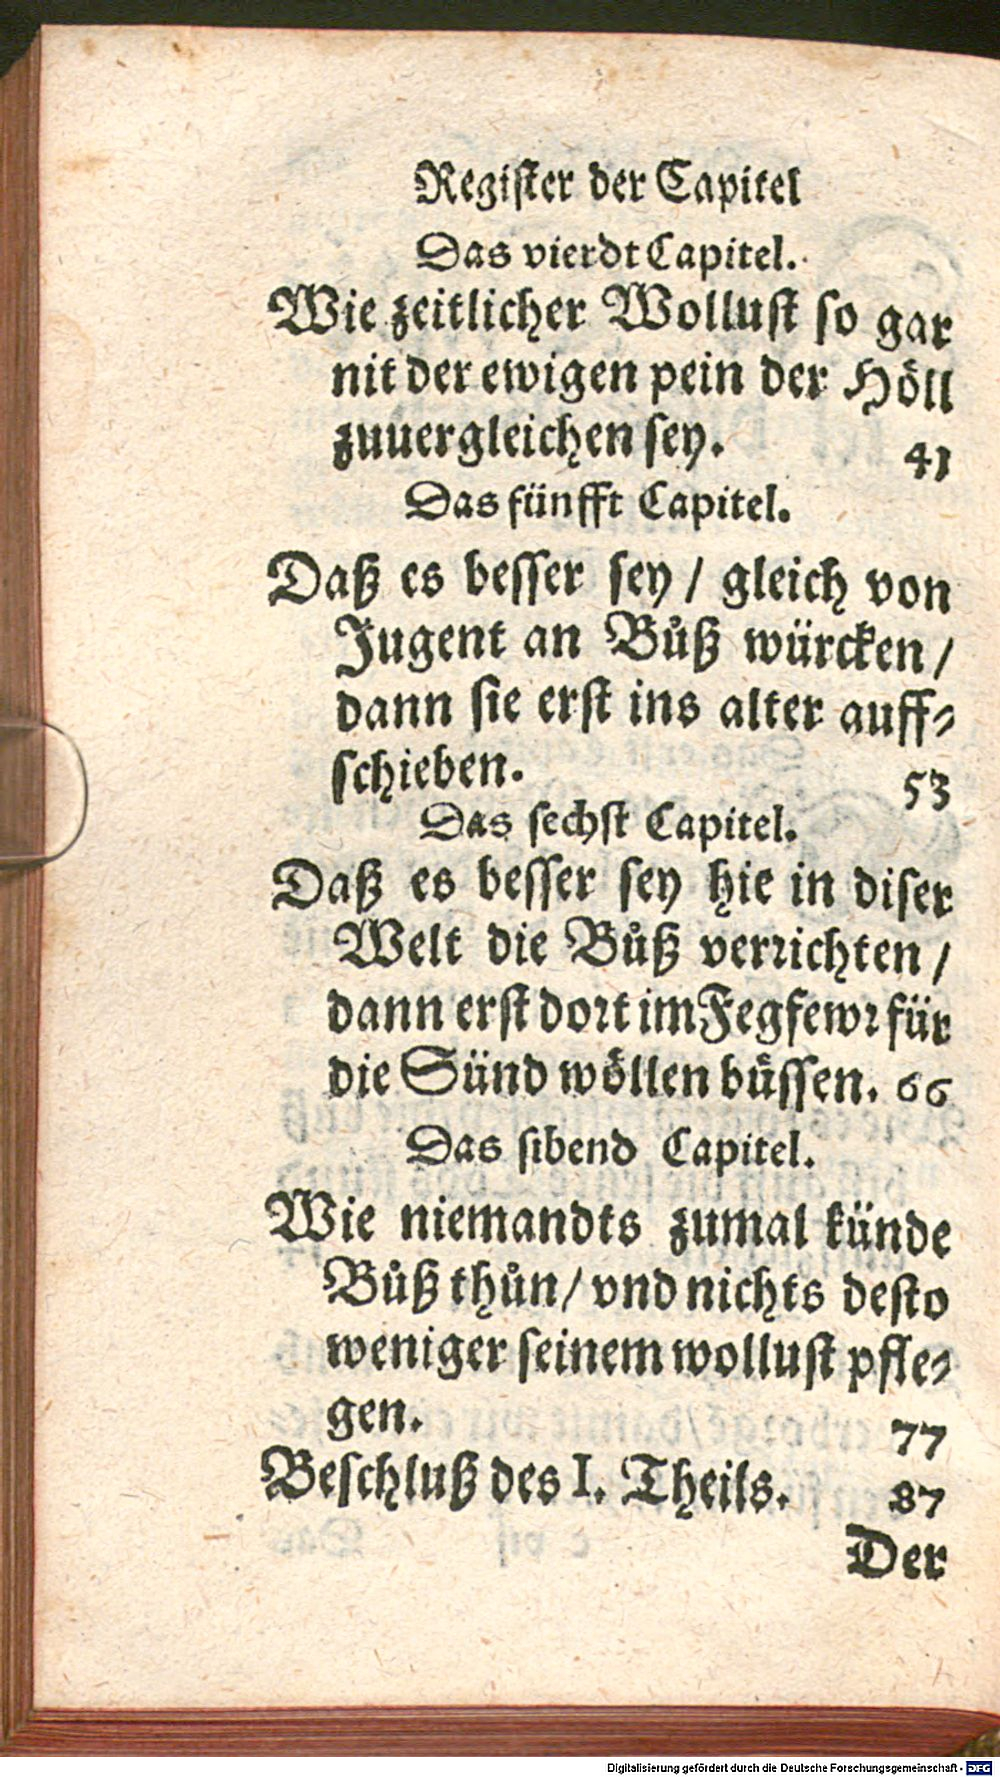 Register der Capitel
Das vierdt Capitel.
Wie zeitlicher Wollust so gar
nit der ewigen pein der Höll
zuuergleichen sey. 41
Das fünfft Capitel.
Daß es besser sey / gleich von
Jugent an Bůß würcken /
dann sie erst ins alter auff⸗
schieben. 53
Das sechst Capitel.
Daß es besser sey hie in diser
Welt die Bůß verrichten /
dann erst dort im Fegfewr für
die Sünd wöllen büssen. 66
Das sibend Capitel.
Wie niemandts zumal künde
Bůß thůn / vnd nichts desto
weniger seinem wollust pfle⸗
gen. 77
Beschluß des I. Theils. 87
Der
Digitalisierung gefördert durch die Deutsche Forschungsgemeinschaft - DFG